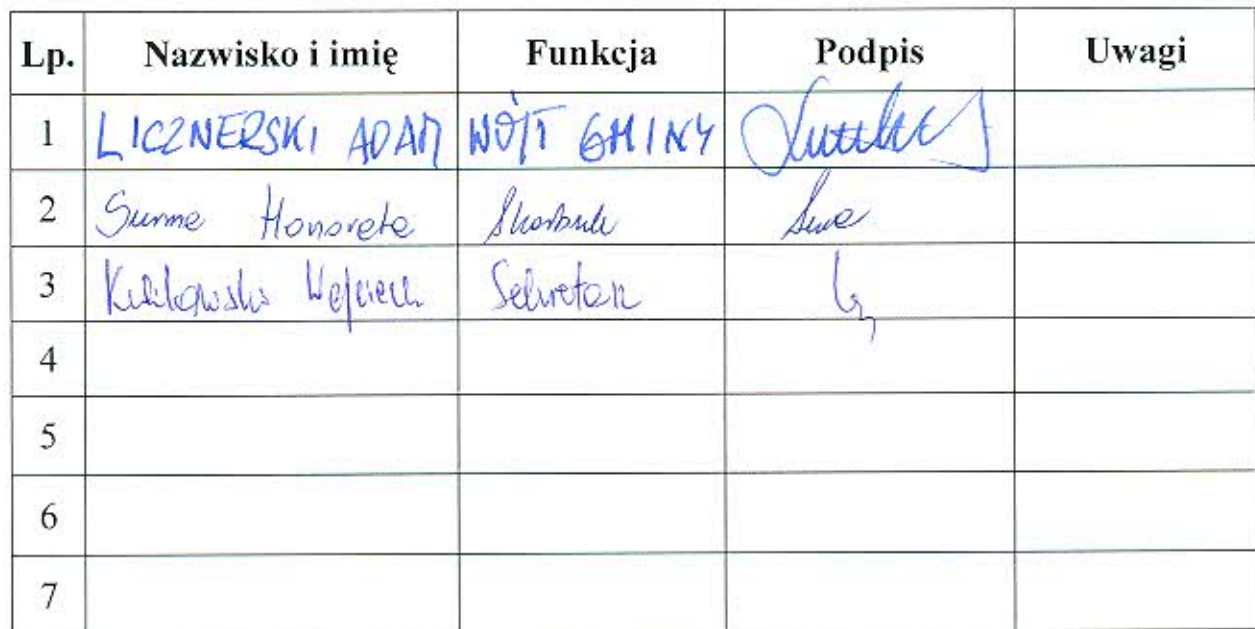 Lp. Nazwisko i imię Funkcja Podpis Uwagi
1 LICZNERSKI ADAM WÓJT GMINY
2 Surma Honorata Skarbnik
3 Wojciech Sekretarz
4
5
6
7